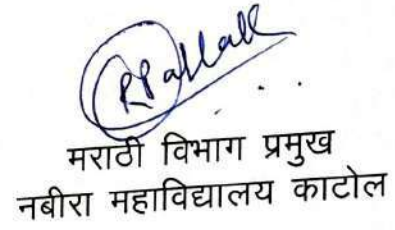 मराठी विभाग प्रमुख
नबीरा महाविद्यालय काटोल